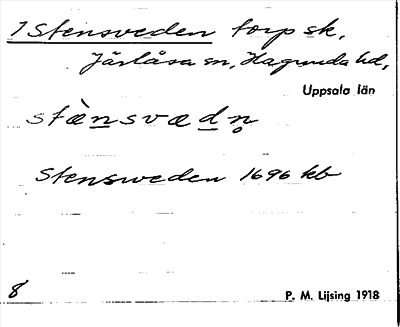 1 Stensveden torp sk.
Järlåsa sn, Hagunda hd,
Uppsala län
stæ̀nsvædn̥
Stensweden 1696 kb
8
P. M. Lijsing 1918